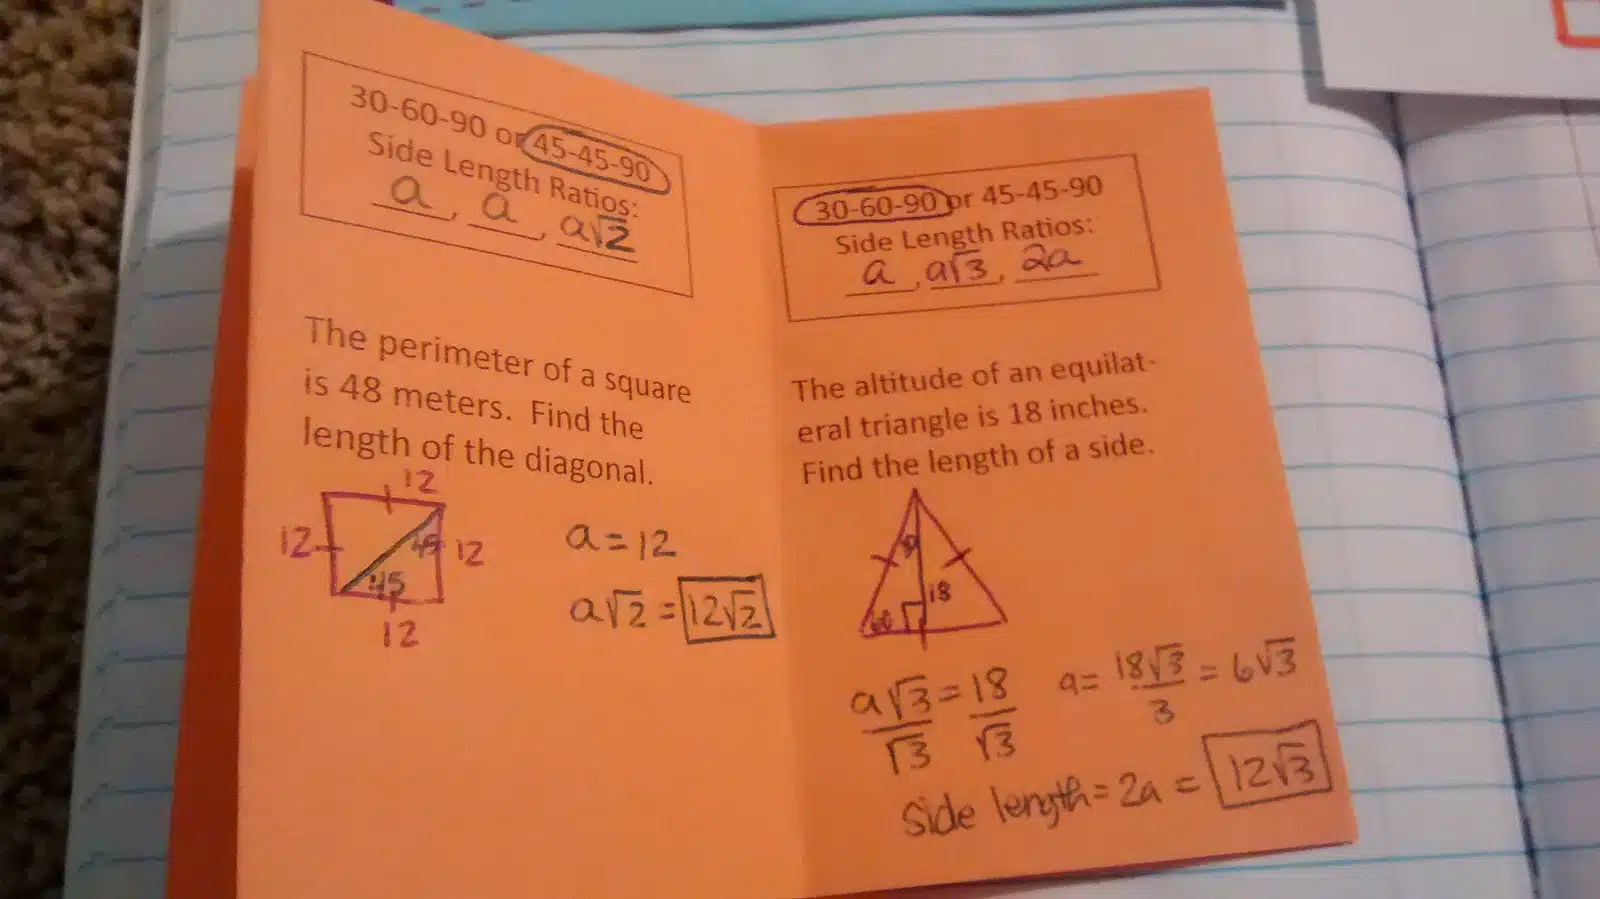 30-60-90 or 45-45-90
Side Length Ratios:
a, a, a√2
The perimeter of a square
is 48 meters. Find the
length of the diagonal.
12
12
12
45
45
12
a = 12
a√2 = 12√2
30-60-90 or 45-45-90
Side Length Ratios:
a, a√3, 2a
The altitude of an equilat-
eral triangle is 18 inches.
Find the length of a side.
18
60
a√3/√3 = 18/√3
a = 18√3/3 = 6√3
Side length = 2a = 12√3